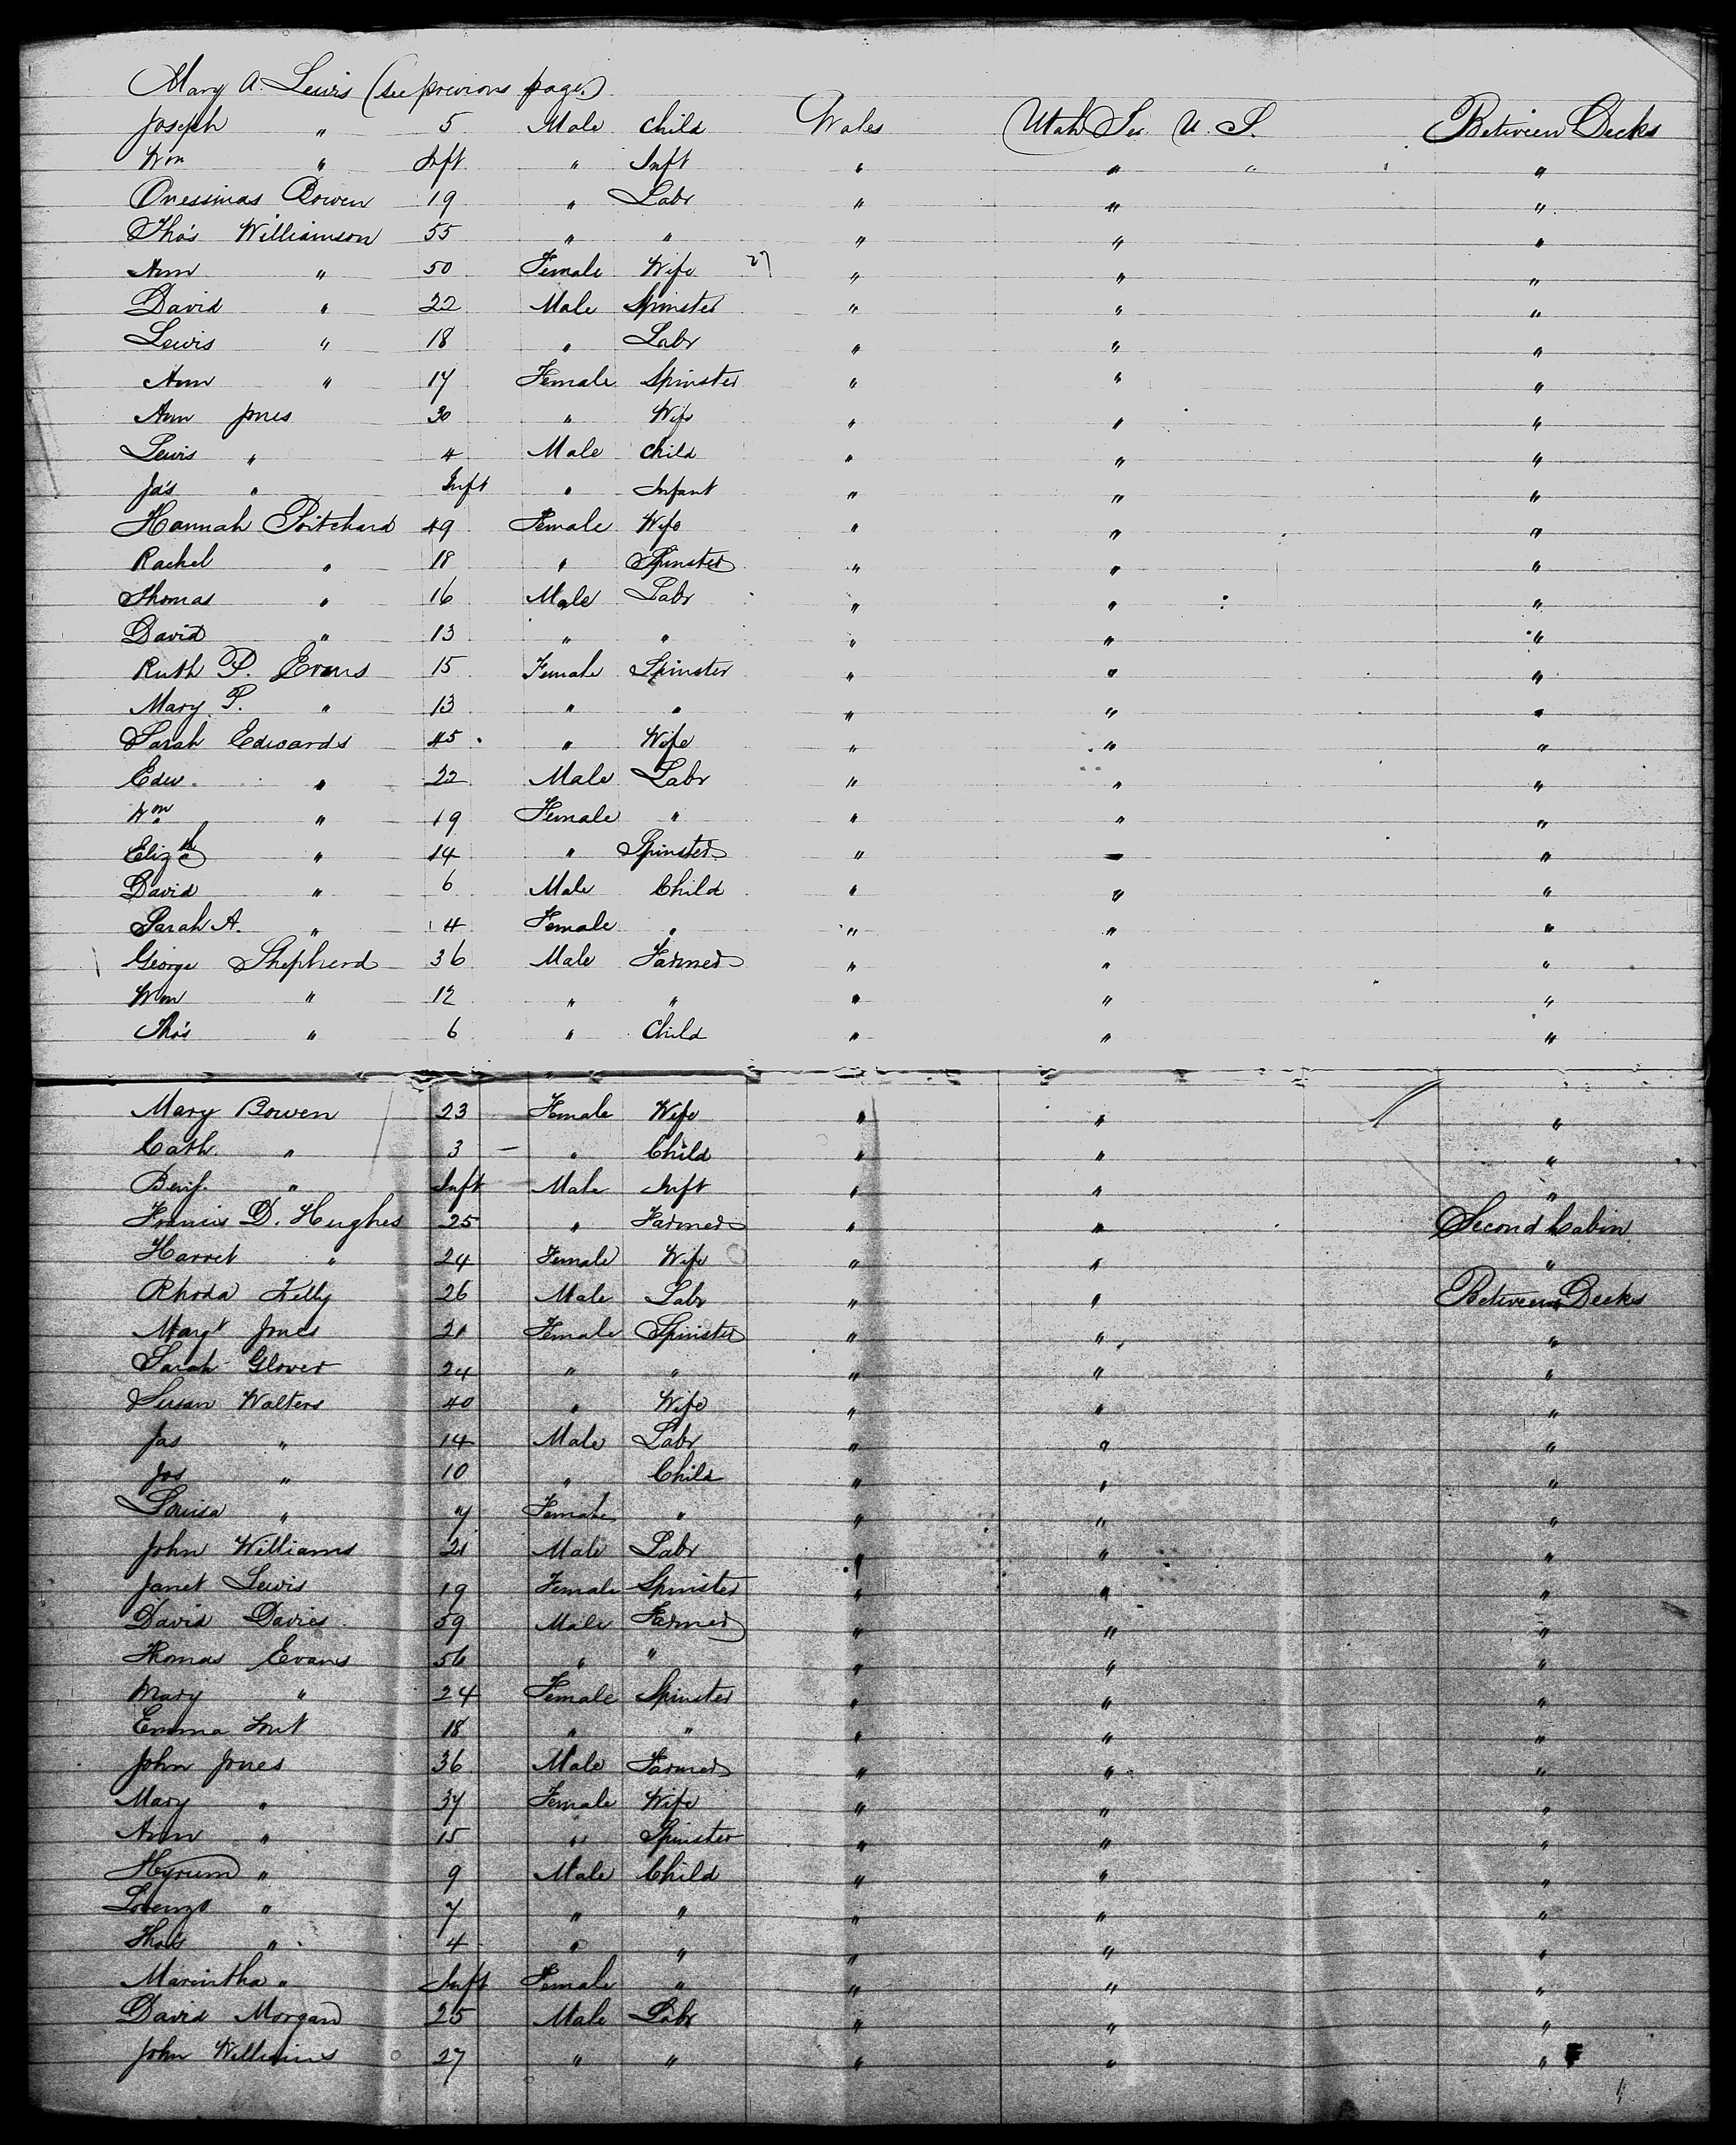 Mary A. Lewis (see previous page)
Joseph " 5 Male Child Wales Utah Ter. U. S. Between Decks
Wm " Inft " Inft " " " "
Onessimas Bowen 19 " Labr " " "
Tho's Williamson 55 " " " " "
Ann " 50 Female Wife " " "
David " 22 Male Spinster " " "
Lewis " 18 " Labr " " "
Ann " 17 Female Spinster " " "
Ann Jones 30 " Wife " " "
Lewis " 4 Male Child " " "
Ja's " Inft " Infant " " "
Hannah Pritchard 49 Female Wife " " "
Rachel " 18 " Spinster " " "
Thomas " 16 Male Labr " " "
David " 13 " " " " "
Ruth P. Evans 15 Female Spinster " " "
Mary P. " 13 " " " " "
Sarah Edwards 45 " Wife " " "
Edw. " 22 Male Labr " " "
Wm " 19 Female " " " "
Elizth " 14 " Spinster " " "
David " 6 Male Child " " "
Sarah A. " 4 Female " " " "
George Shepherd 36 Male Farmer " " "
Wm " 12 " " " " "
Tho's " 6 " Child " " "
Mary Bowen 23 Female Wife " " "
Cath. " 3 " Child " " "
Benj. " Inft Male Inft " " "
Francis D. Hughes 25 " Farmer " " Second Cabin
Harret " 24 Female Wife " " "
Rhoda Kelly 26 Male Labr " " Between Decks
Margt Jones 21 Female Spinster " " "
Sarah Glover 24 " " " " "
Susan Walters 40 " Wife " " "
Jas " 14 Male Labr " " "
Jos " 10 " Child " " "
Louisa " 7 Female " " " "
John Williams 21 Male Labr " " "
Janet Lewis 19 Female Spinster " " "
David Davies 59 Male Farmer " " "
Thomas Evans 56 " " " " "
Mary " 24 Female Spinster " " "
Emma 18 " " " " "
John Jones 36 Male Farmer " " "
Mary " 37 Female Wife " " "
Ann " 15 " Spinster " " "
Hyrum " 9 Male Child " " "
Lorenzo " 7 " " " " "
Tho's " 4 " " " " "
Marintha " Inft Female " " " "
David Morgan 25 Male Labr " " "
John Williams 27 " " " " "